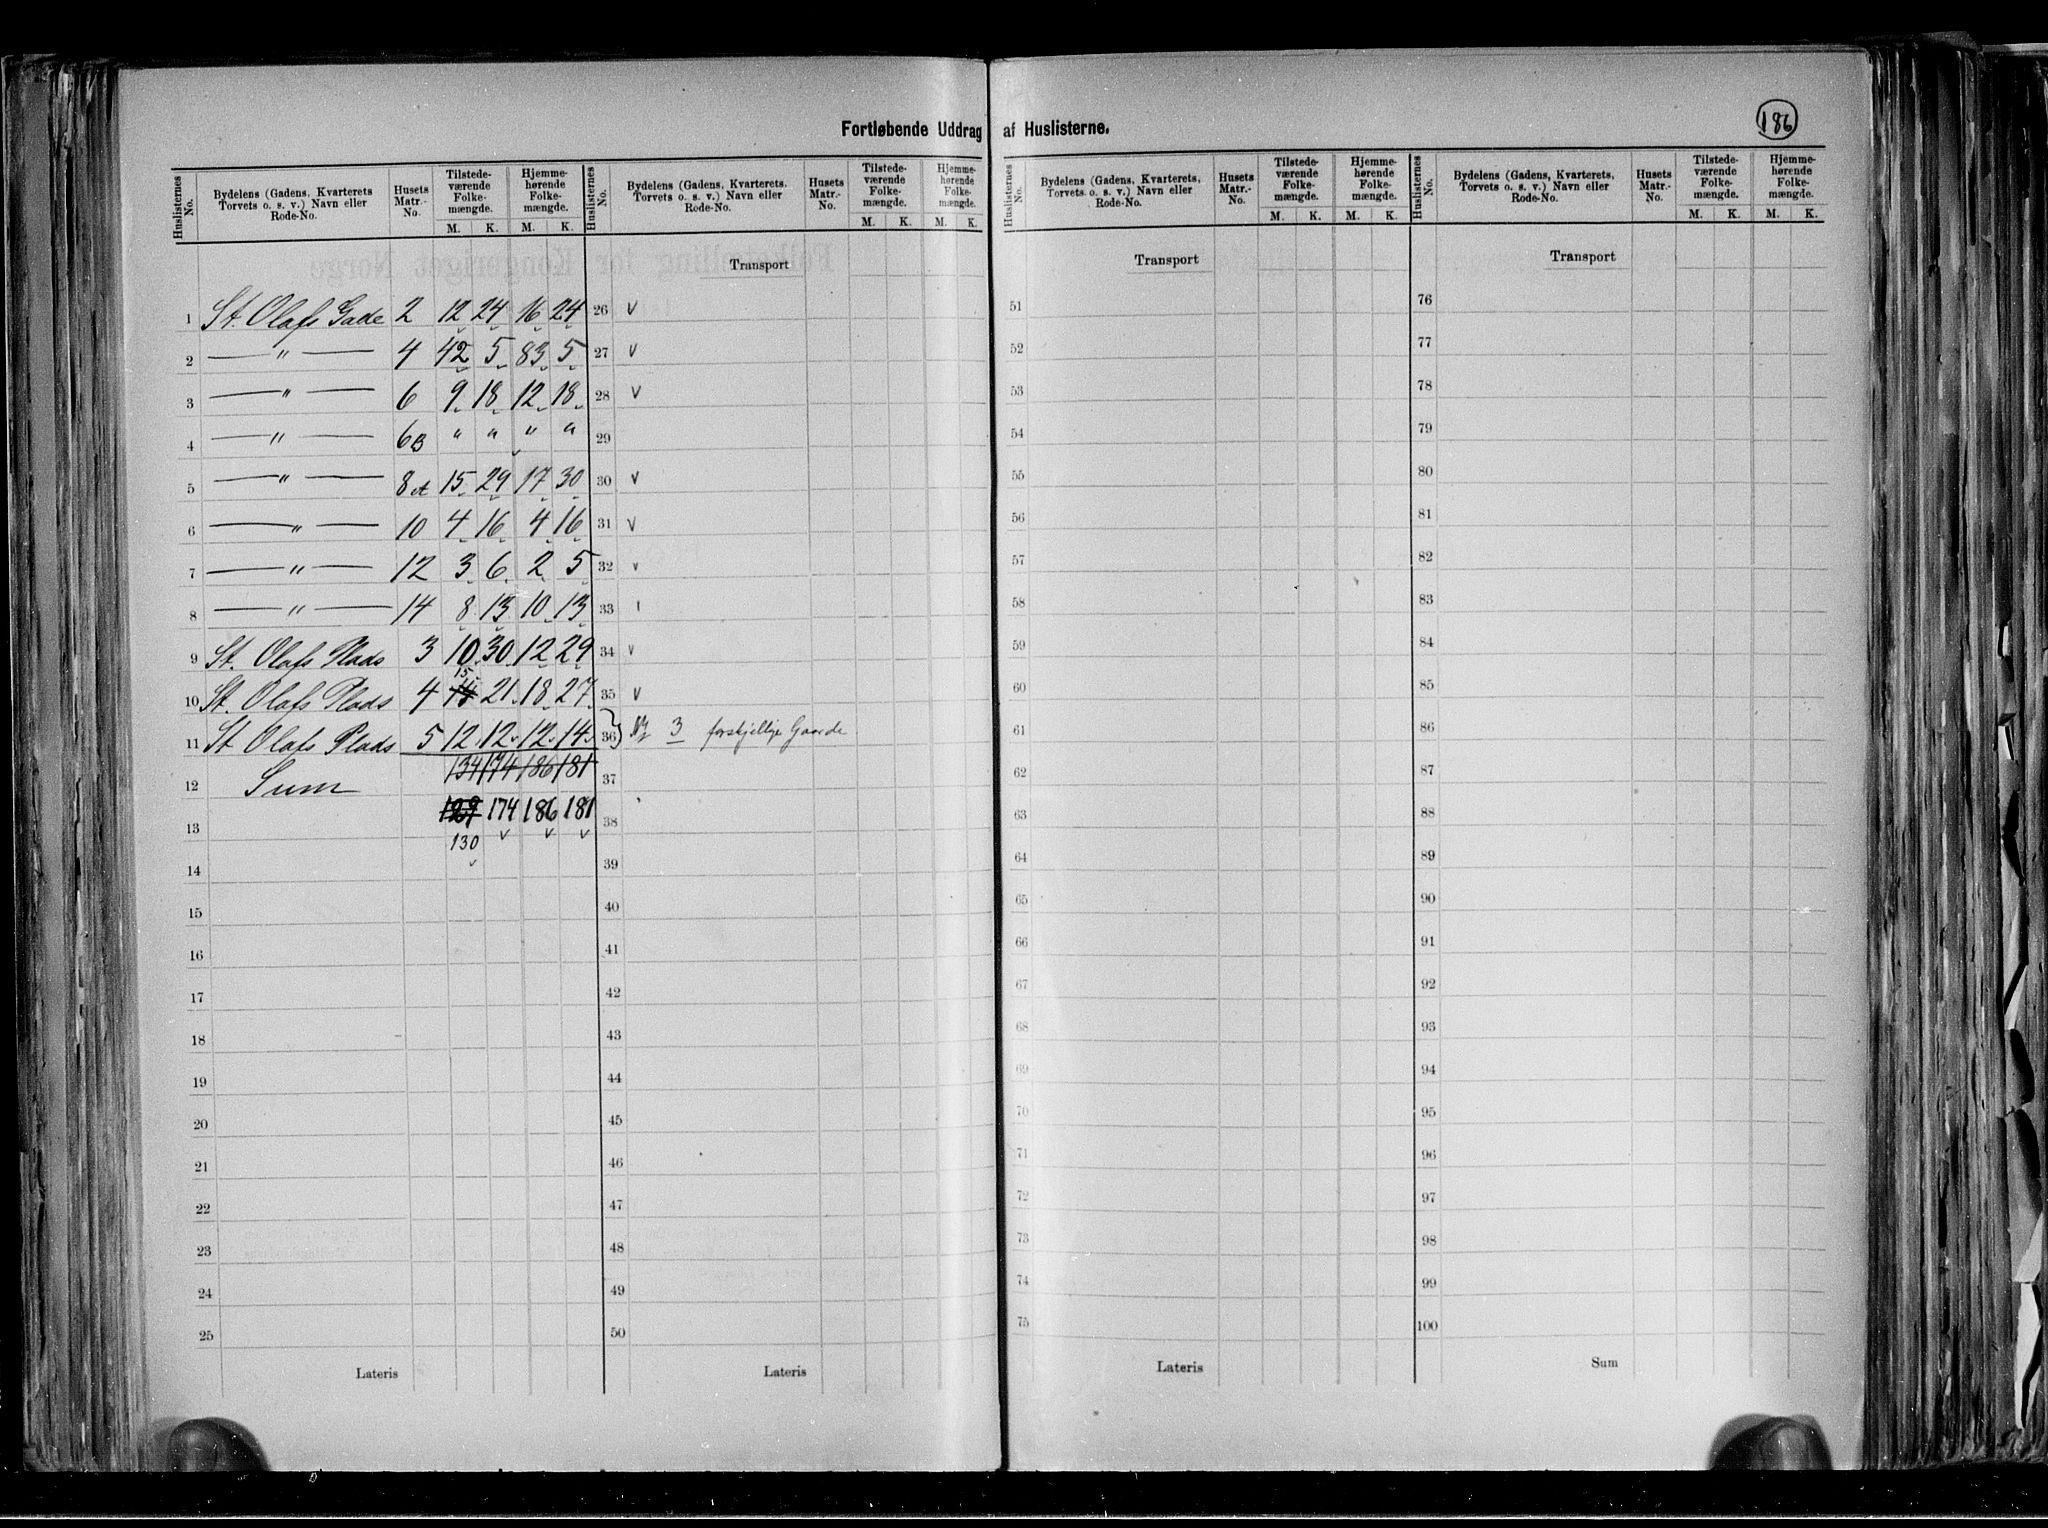 Fortløbende Uddrag af Huslisterne.
186
Huslisternes No. | Bydelens (Gadens, Kvarterets Torvets o. s. v.) Navn eller Rode-No. | Husets Matr.-No. | Tilstede-værende Folke-mængde. M. K. | Hjemme-hørende Folke-mængde. M. K.
Huslisternes No. | Bydelens (Gadens, Kvarterets, Torvets o. s. v.) Navn eller Rode-No. | Husets Matr.-No. | Tilstede-værende Folke-mængde. M. K. | Hjemme-hørende Folke-mængde. M. K.
Huslisternes No. | Bydelens (Gadens, Kvarterets, Torvets o. s. v.) Navn eller Rode-No. | Husets Matr.-No. | Tilstede-værende Folke-mængde. M. K. | Hjemme-hørende Folke-mængde. M. K.
Huslisternes No. | Bydelens (Gadens, Kvarterets, Torvets o. s. v.) Navn eller Rode-No. | Husets Matr.-No. | Tilstede-værende Folke-mængde. M. K. | Hjemme-hørende Folke-mængde. M. K.
Transport Transport Transport
1 St. Olafs Gade 2 12 24 16 24 26 v 51 76
2 — " — 4 42 5 83 5 27 v 52 77
3 — " — 6 9 18 12 18 28 v 53 78
4 — " — 6B " " " " 29 54 79
5 — " — 8A 15 29 17 30 30 v 55 80
6 — " — 10 4 16 4 16 31 v 56 81
7 — " — 12 3 6 2 5 32 v 57 82
8 — " — 14 8 13 10 13 33 58 83
9 St. Olafs Plads 3 10 30 12 29 34 v 59 84
10 St. Olafs Plads 4 15 21 18 27 35 v 60 85
11 St Olafs Plads 5 12 12 12 14 36 3 forskjellige Gaarde 61 86
12 Sum 134 174 186 181 37 62 87
13 129 174 186 181 38 63 88
130
14 39 64 89
15 40 65 90
16 41 66 91
17 42 67 92
18 43 68 93
19 44 69 94
20 45 70 95
21 46 71 96
22 47 72 97
23 48 73 98
24 49 74 99
25 50 75 100
Lateris Lateris Lateris Sum